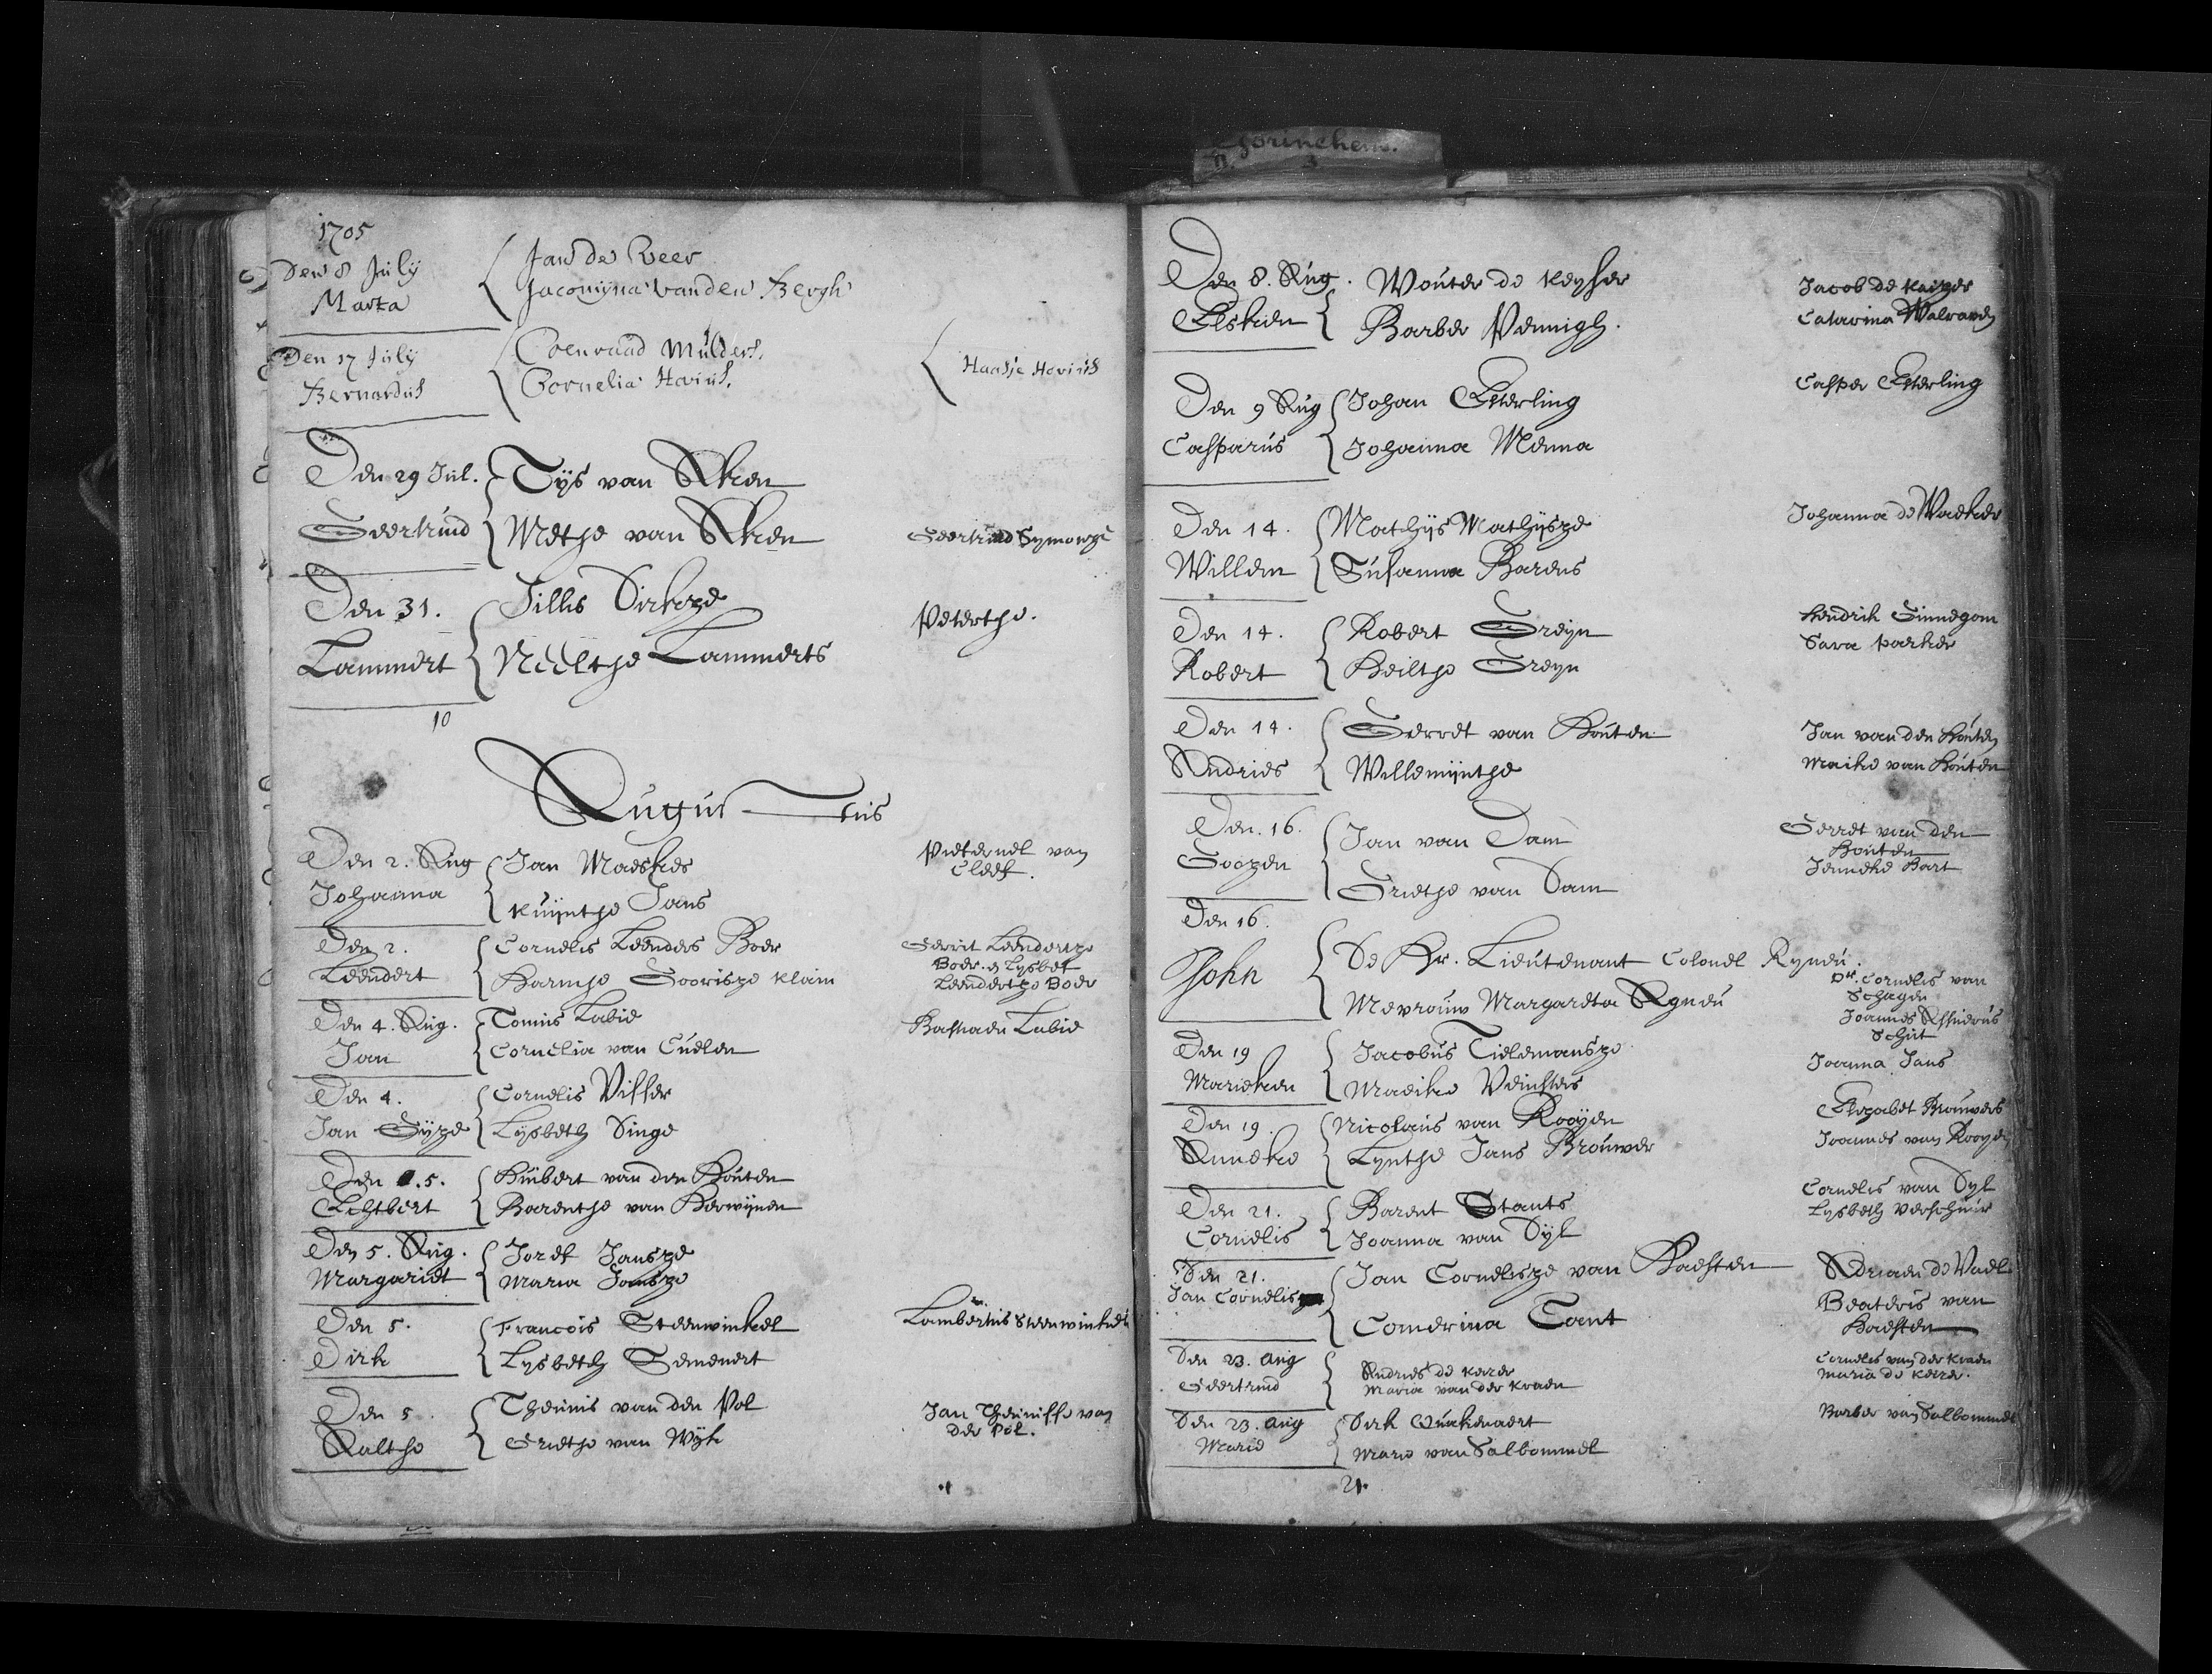 Gorinchem.
3
1705
Den 8 Julij
Marta
Jan de Veer
Jacomijna vanden Bergh
Den 17 Julij
Bernardus
Coenraad Mulders.
Cornelia Hovius.
Haasje Hovius
Den 29 Jul.
Geertruid
Tijs van Aken
Methe van Aken
Geertruid Symonze
Den 31.
Lammert
Jillis Dirkze
Neelthe Lammerts
Peterthe.
10
Augustus
Den 2. Aug
Johanna
Jan Maeskes
Kuijnthe Jans
Pieternel van
Cleef.
Den 2.
Leendert
Cornelis Leenders Boer
Harmse Goorisze Klain
Gerrit Leendertze
Boer. en Lysbet
Leendertze Boer
Den 4. Aug.
Jan
Tonnis Labie
Cornelia van Cuelen
Bastiaen Labie
Den 4.
Jan Gijze
Cornelis Visser
Lijsbeth Singe
Den 5.
Echtbert
Huibert van den Houten
Barenthe van Herwijnen
Den 5. Aug.
Margariet
Joref Jansze
Maria Jansze
Den 5.
Dirk
Francois Steenwinkel
Lysbeth Semenert
Lambertus Steenwinkel
Den 5.
Aalthe
Theunis van den Pol
Griethe van Wijk
Jan Theunisse van
der Pol.
Den 8. Aug.
Elsken
Wouter de Keyser
Barber Pennigh.
Jacob de Keizer
Catarina Walraven
Den 9 Aug
Casparus
Johan Esterling
Johanna Menna
Casper Esterling
Den 14.
Willem
Mathijs Mathijsze
Susanna Barens
Johanna de Waeker
Den 14.
Robert
Robert Greyn
Heilthe Greyn
Hendrik Ginnegom
Sara Parker
Den 14.
Andries
Gerret van Houten
Willemijnthe
Jan van den Houten
Maike van Houten
Den. 16.
Goozen
Jan van Dam
Griethe van Dam
Gerret van den
Houten
Jenneke Bart
Den 16.
John
De Hr. Lieutenant Colonel Ryneu.
Mevrouw Margareta Agneu
Dr. Cornelis van
Schagen
Joannes Assuerus
Schut
Den 19
Marieken
Jacobus Tielemansze
Maeike Veinsters
Joanna Jans
Den 19.
Anneke
Nicolaus van Rooijen
Lynthe Jans Brouwer
Elizabet Brouwers
Joannes van Rooyen
Den 21.
Cornelis
Barent Stants
Joanna van Dyl
Cornelis van Dyl
Lysbeth Verschuir
Den 21.
Jan Cornelis
Jan Cornelisze van Haesten
Comerina Tant
Adriaen de Vael
Beateris van
Haesten
Den 23. Aug
Geertruid
Andries de Keizer
Maria van der Kraen
Cornelis van der Kraen
Maria de Keizer.
Den 23. Aug
Marie
Dirk Quakenaert
Marie van Salbommel
Barber van Salbommel
21.